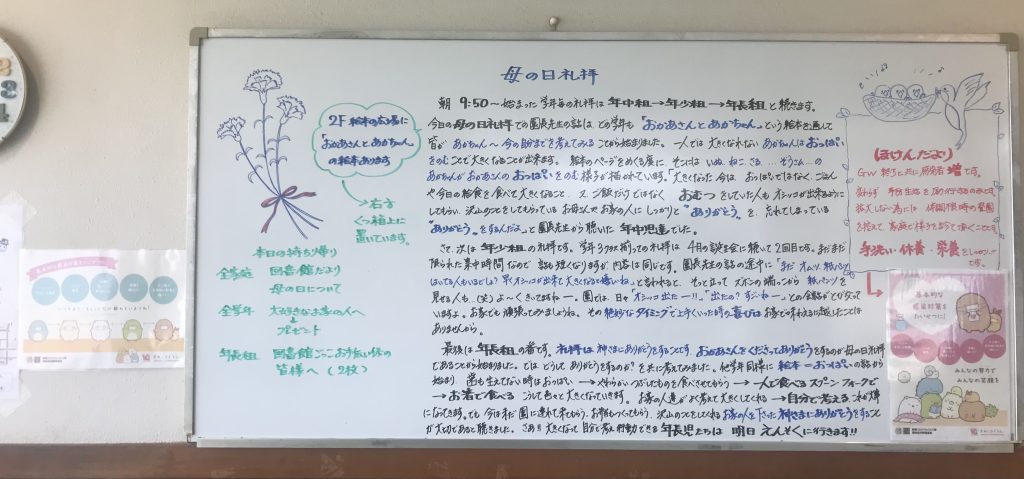 母の日礼拝
朝 9:50～始まった学年毎の礼拝は 年中組→年少組→年長組 と続きます。
今日の母の日礼拝での園長先生の話は、どの学年も「おかあさんとあかちゃん」という絵本を通して
皆が あかちゃん～今の自分までを考えてみることから始まりました。一人では大きくなれない あかちゃんは おっぱい
をのむことで大きくなることが出来ます。絵本のページをめくる度に、そこには いぬ、ねこ、さる...ぞうさん...の
あかちゃんが おかあさんの おっぱいをのむ 様子が描かれています。「大きくなった今は、おっぱいではなく、ごはん
や今日の給食を食べて大きくなること、又、ご飯だけではなく おむつをしていた人も オシッコが出来るように
してもらい、沢山のことをしてもらっている お母さんやお家の人に しっかりと "ありがとう" を、忘れてしまっている
"ありがとう" をするんだよ」と園長先生から聴いた 年中児達でした。
さて、次は 年少組の礼拝です。学年3クラス揃っての礼拝は 4月の誕生会に続いて2回目です。まだまだ
限られた集中時間なので 話も短くなりますが、内容は同じです。園長先生の話の途中に「まだ オムツ、紙パンツ
はいてる人もいるでしょ？早くオシッコが出来て大きくなると嬉しいね」と言われると、そっと立って ズボンの端っこから 紙パンツを
見せる人も...(笑) よ～くきいてますね―。園では、日々「オシッコ出た―!!」「出たの？すご～いね―」との会話がとび交って
いますよ。お家でも 頑張ってみましょうね。その 絶妙なタイミングで上手くいった時の喜びは お家で味わえるに越したことは
ありませんから。
最後は 年長組の番です。礼拝は 神さまにありがとうをすることです。おかあさんをくださってありがとうをするのが母の日礼拝
であることから始まりました。では、どうして ありがとうをするのか？を共に考えてみました。他学年同様に 絵本＝おっぱいの話から
始まり、歯も生えてない時はおっぱい→やわらかいつぶしたものを食べさせてもらう→一人で食べる スプーン フォークで
→お箸で食べる こうして 大きくなっていきます。お家の人達が よく考えて大きくしてくれる→自分で考える これが大事
になってきます。でも 今はまだ 園に連れて来てもらう、お弁当もつくってもらう、沢山のことをしてくれる お家の人を下さった神さまにありがとうをすること
が大切であると聴きました。さあ!! 大きくなって 自分で考え行動できる 年長児たちは 明日 えんそくに行きます!!
2F 絵本の広場に
「おかあさんとあかちゃん」
の絵本あります
右すみ
くつ箱上に
置いています。
本日の持ち帰り
全家庭 図書館だより
母の日について
全学年 大好きなお家の人へ
プレゼント
年長組 図書館ごっこお手伝い係の
皆様へ（2枚）
（ほけんだより）
GW 終了と共に 増です。
手洗い・休養・栄養
です。
基本的な
感染対策を
たいせつに！
みんなの努力で
みんなの笑顔を